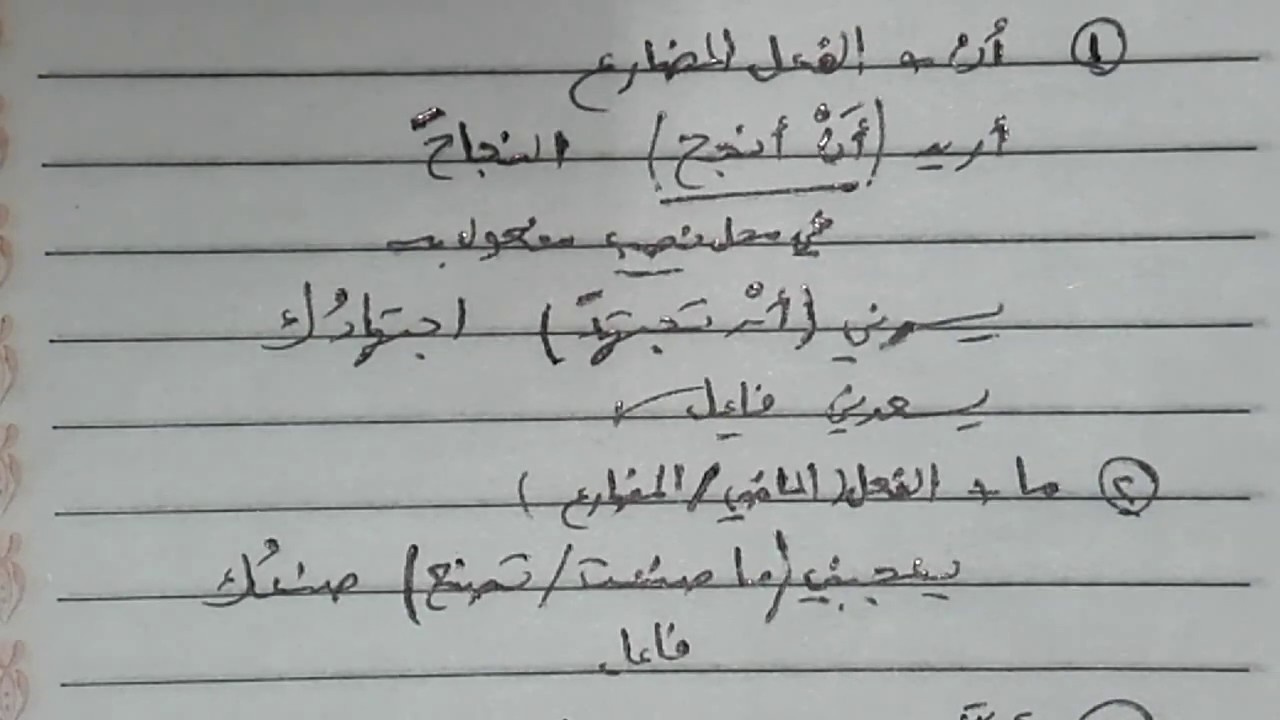 ① أن + الفعل المضارع
أريد (أَنْ أنجح) النجاحَ
في محل نصب مفعول به
يسرني (أنْ تَجتهدَ) اجتهادُك
يسعدني فاعل
② ما + الفعل (الماضي / المضارع)
يعجبني (ما صنعت / تصنع) صنعُك
فاعل